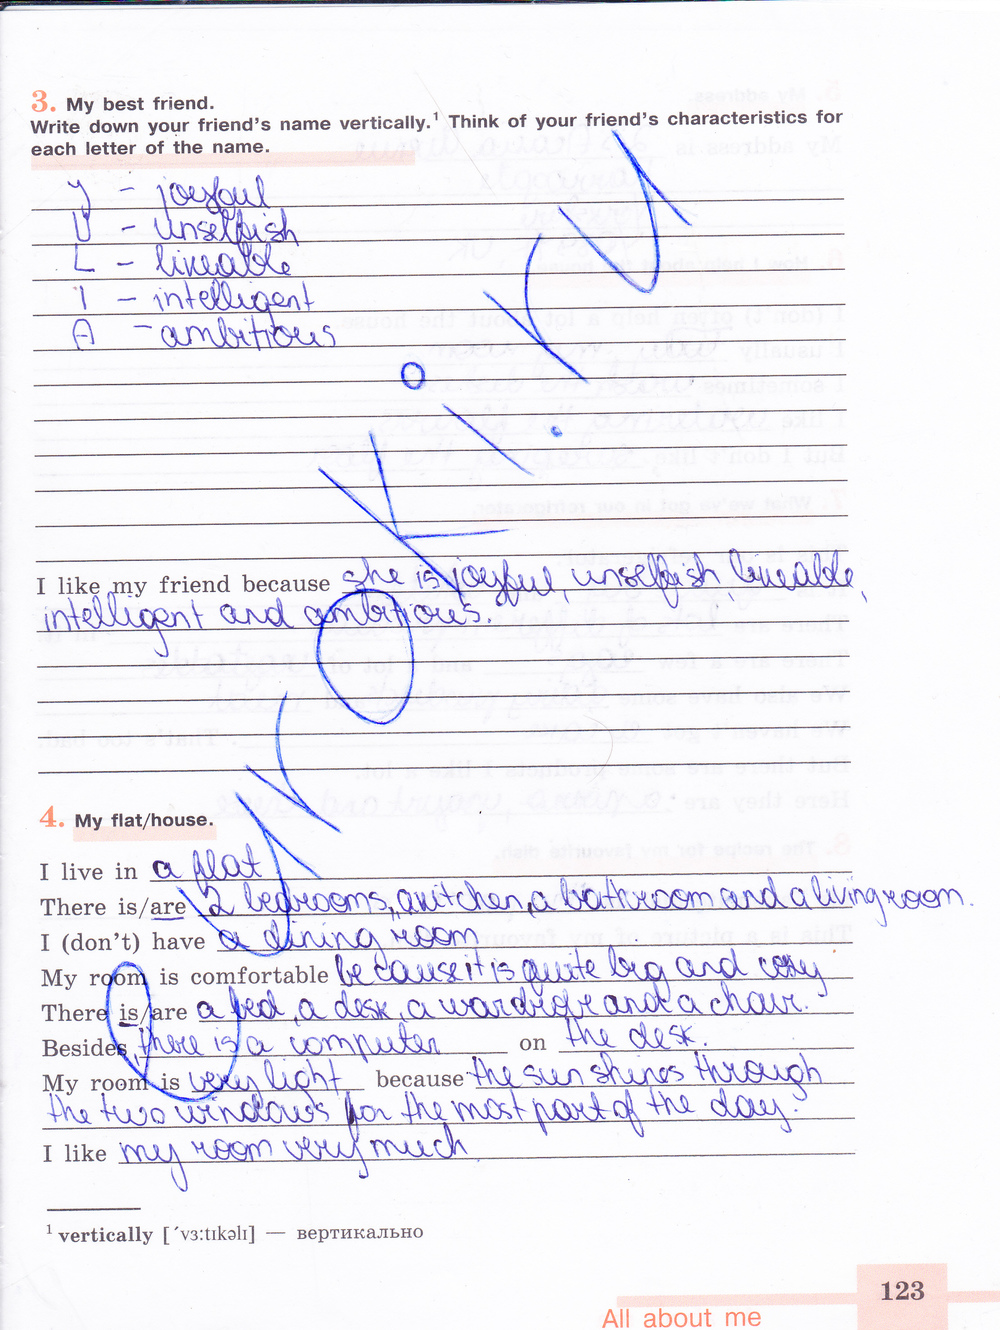 3. My best friend.
Write down your friend's name vertically.¹ Think of your friend's characteristics for
each letter of the name.
Y - joyful
U - unselfish
L - likeable
I - intelligent
A - ambitious
I like my friend because she is joyful, unselfish, likeable,
intelligent and ambitious.
4. My flat/house.
I live in a flat
There is/are 2 bedrooms, a kitchen, a bathroom and a living room.
I (don't) have a dining room
My room is comfortable because it is quite big and cosy
There is/are a bed, a desk, a wardrobe and a chair.
Besides, there is a computer on the desk.
My room is very light because the sun shines through
the two windows for the most part of the day.
I like my room very much
¹ vertically [ˈvɜ:tɪkəlɪ] — вертикально
123
All about me